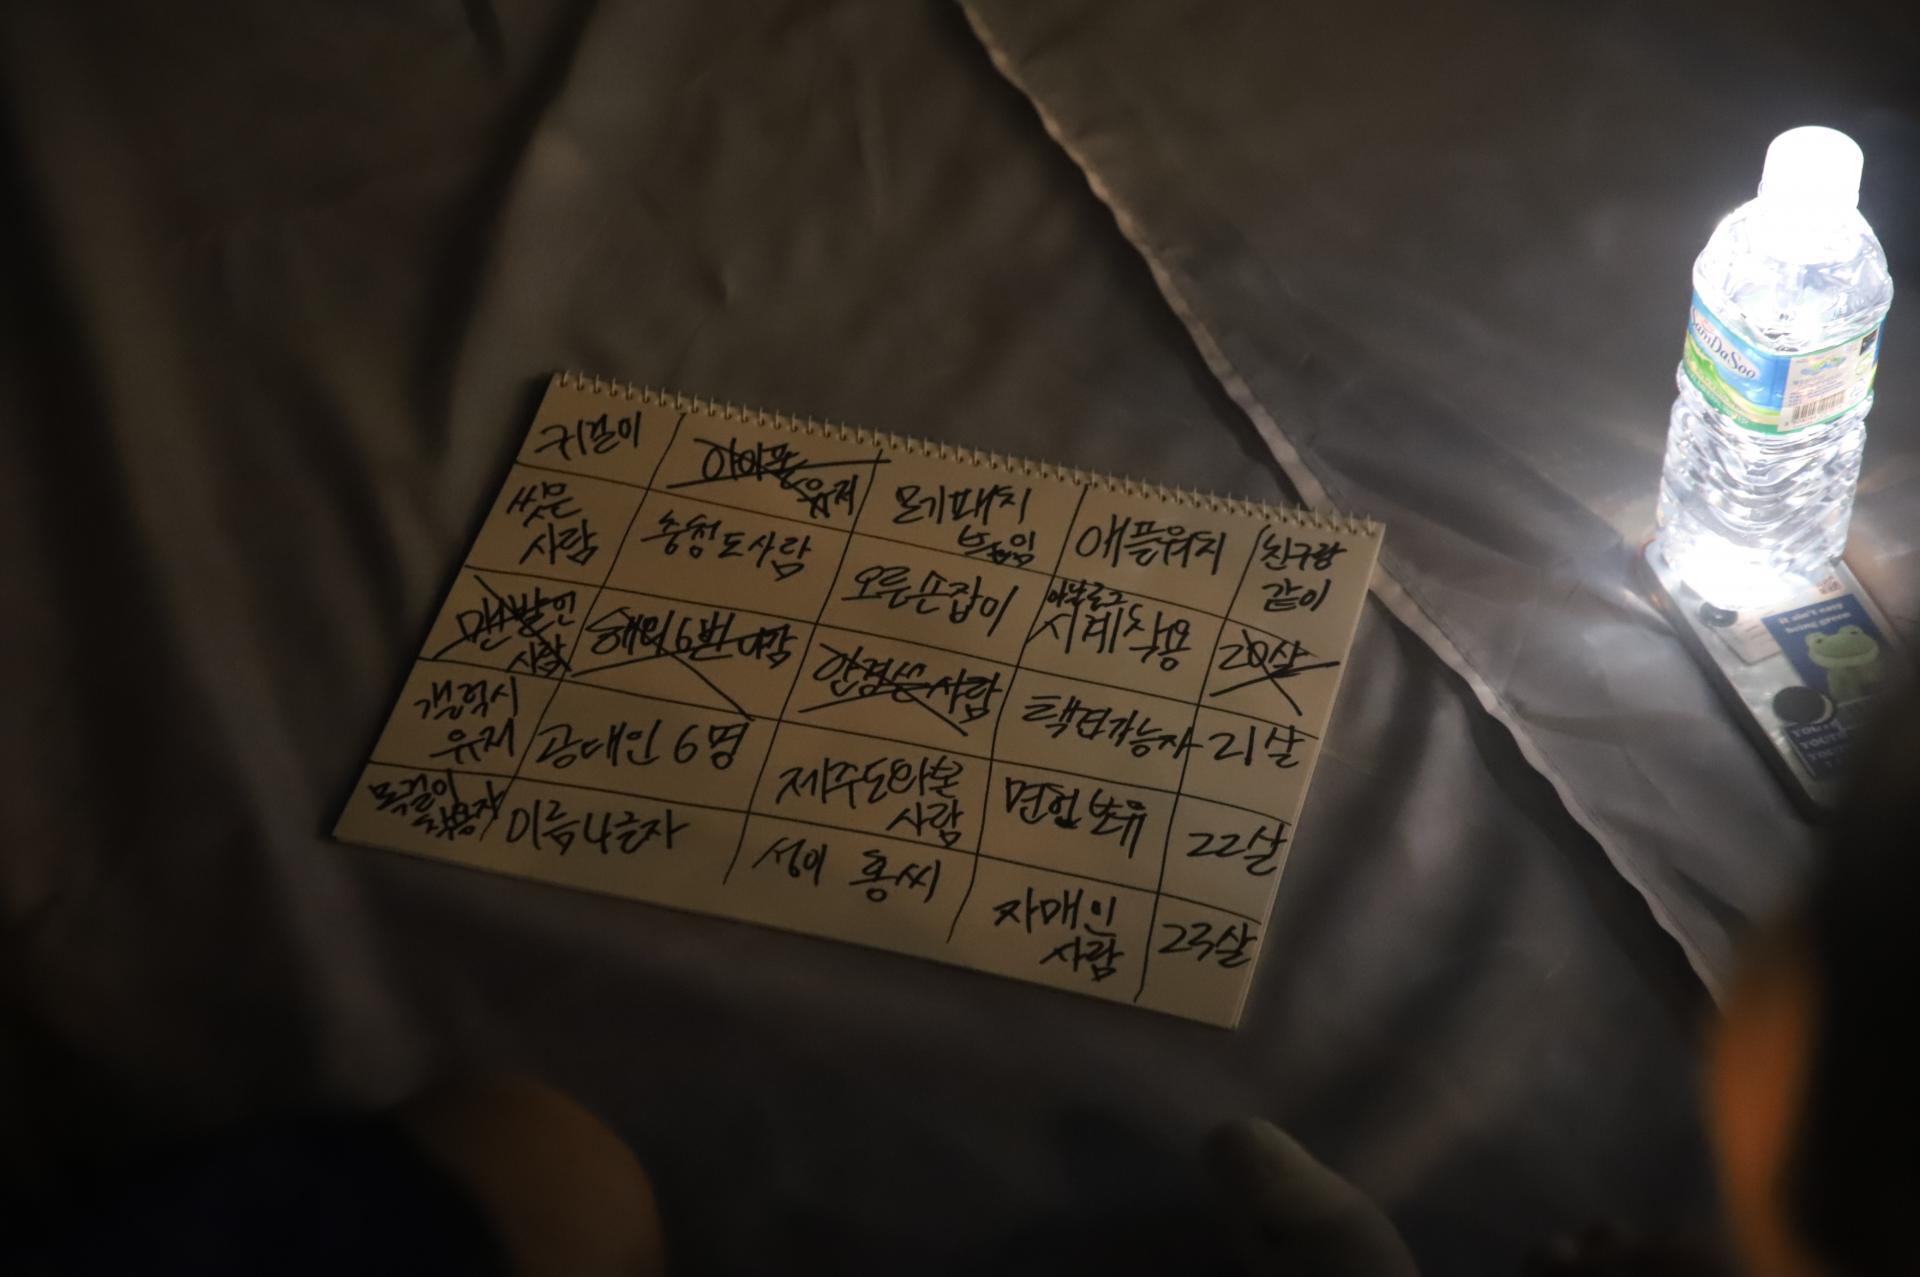 귀걸이
아이폰
유저
모기패치
붙임
애플워치
친구랑
같이
씻은
사람
충청도사람
오른손잡이
아날로그
시계착용
20살
맨발인
사람
해외6번이상
안경쓴사람
택견가능자
21살
갤럭시
유저
공대인 6명
제주도와본
사람
면허 보유
22살
목걸이
착용자
이름 4글자
성이 홍씨
자매인
사람
23살
SamDaSoo
it ain't easy
being green